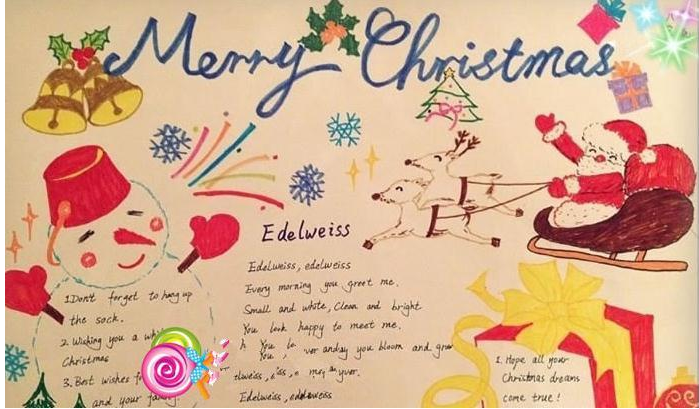 Merry Christmas
Edelweiss
Edelweiss, edelweiss
Every morning you greet me.
Small and white, Clean and bright
You look happy to meet me.
You bloom and grow
Edelweiss, edelweiss
1. Don't forget to hang up
the sock.
2. Wishing you a
Christmas
3. Best wishes
and your family
1. Hope all your
Christmas dreams
come true!